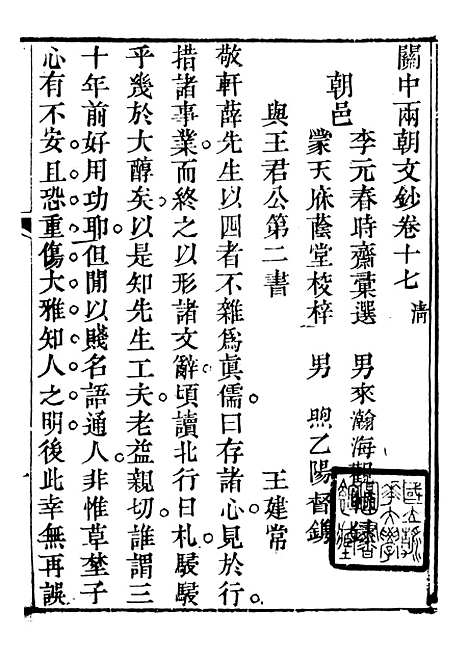 關中兩朝文鈔卷十七 清
朝邑
李元春時齋彙選 男來瀚海觀
蒙天庥蔭堂校梓 男 煦乙陽督鐫
與王君公第二書 王建常
敬軒薛先生以四者不雜爲眞儒曰存諸心見於行
措諸事業而終之以形諸文辭頃讀北行日札駸駸
乎幾於大醇矣以是知先生工夫老益親切誰謂三
十年前好用功耶但閒以賤名語通人非惟草埜子
心有不安且恐重傷大雅知人之明後此幸無再誤
國立
華大學